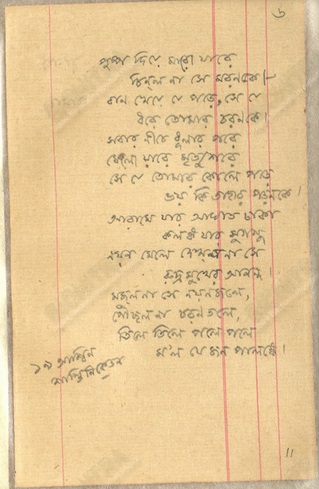 ৬
পুষ্প দিয়ে মারো যারে
চিনল না সে মরণকে।
বাণ খেয়ে যে পড়ে, সে যে
ধরে তোমার চরণকে।
সবার নীচে ধুলার পরে
ফেলো যারে মৃত্যুশরে
সে যে তোমার কোলে পড়ে
ভয় কি তাহার পড়নকে।
আরামে যার আঘাত ঢাকা
কলঙ্ক যার সুগন্ধ
নয়ন মেলে দেখল না সে
রুদ্র মুখের আনন্দ।
মজল না সে নয়নজলে,
পৌঁছল না চরণতলে,
তিলে তিলে পলে পলে
ম'ল যেজন পালঙ্কে।
১৯ আশ্বিন
শান্তিনিকেতন
11